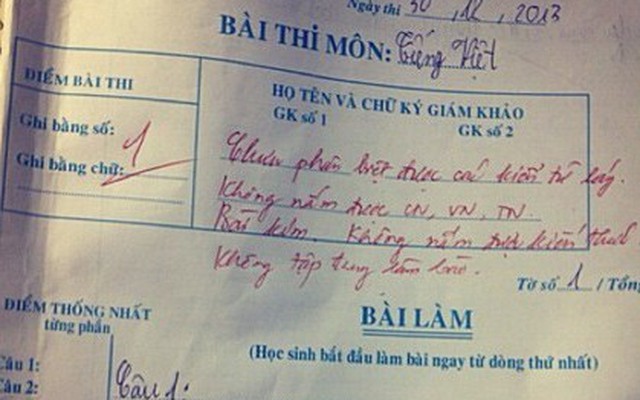 Ngày thi 30, 12, 2013
BÀI THI MÔN: Tiếng Việt
ĐIỂM BÀI THI
Ghi bằng số: 1
Ghi bằng chữ:
HỌ TÊN VÀ CHỮ KÝ GIÁM KHẢO
GK số 1 GK số 2
Chưa phân biệt được các kiểu từ láy.
Không nắm được CN, VN, TN.
Rất kém. Không nắm được kiến thức
Không tập trung làm bài.
Tờ số 1 / Tổng
ĐIỂM THỐNG NHẤT
từng phần
BÀI LÀM
(Học sinh bắt đầu làm bài ngay từ dòng thứ nhất)
Câu 1:
Câu 2:
Câu 1: